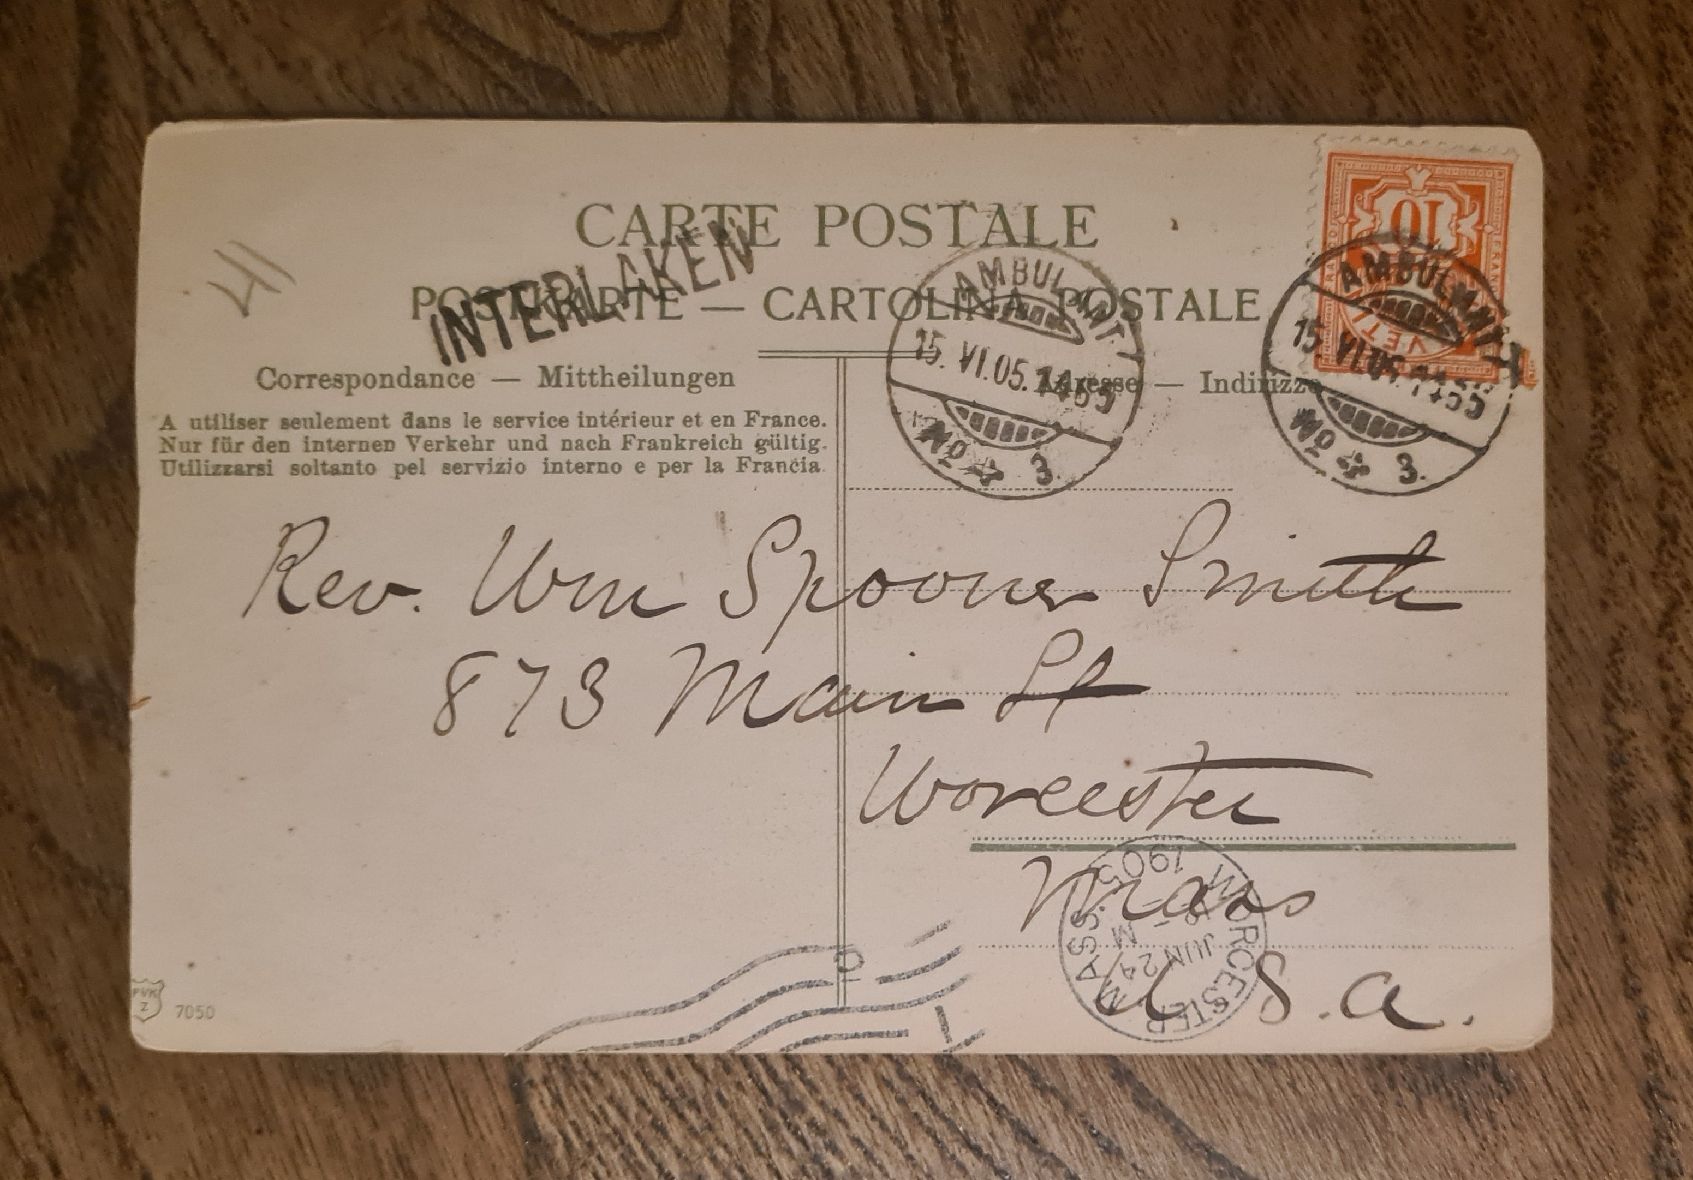 CARTE POSTALE
POSTKARTE — CARTOLINA POSTALE
INTERLAKEN
41
10
AMBULANT
15. VI. 05. 1465
No 3.
AMBULANT
15. VI. 05. 1465
No 3.
Correspondance — Mittheilungen
Adresse — Indirizzo
A utiliser seulement dans le service intérieur et en France.
Nur für den internen Verkehr und nach Frankreich gültig.
Utilizzarsi soltanto pel servizio interno e per la Francia.
Rev. Wm Spooner Smith
873 Main St
Worcester
Mass
U S. A.
WORCESTER MASS.
JUN 24
M
1905
PVK
Z
7050